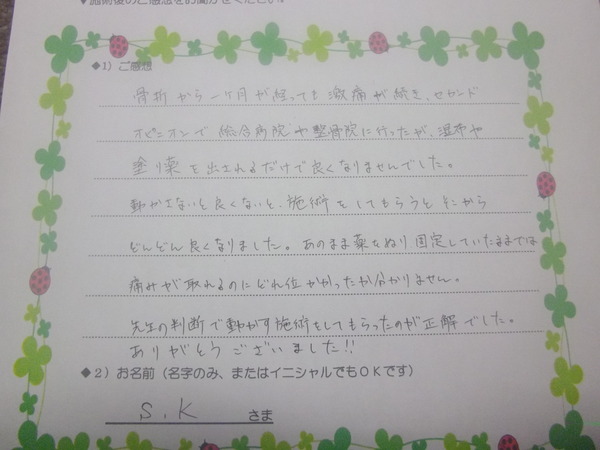 ▼施術後のご感想をお聞かせください。
◆1）ご感想
骨折から一ヶ月が経っても激痛が続き、セカンド
オピニオンで総合病院や整骨院に行ったが、湿布や
塗り薬を出されるだけで良くなりませんでした。
動かさないと良くないと、施術をしてもらうとそこから
どんどん良くなりました。あのまま薬をぬり固定していたままでは
痛みが取れるのにどれ位かかったか分かりません。
先生の判断で動かす施術をしてもらったのが正解でした。
ありがとうございました!!
◆2）お名前（名字のみ、またはイニシャルでもOKです）
S.K さま